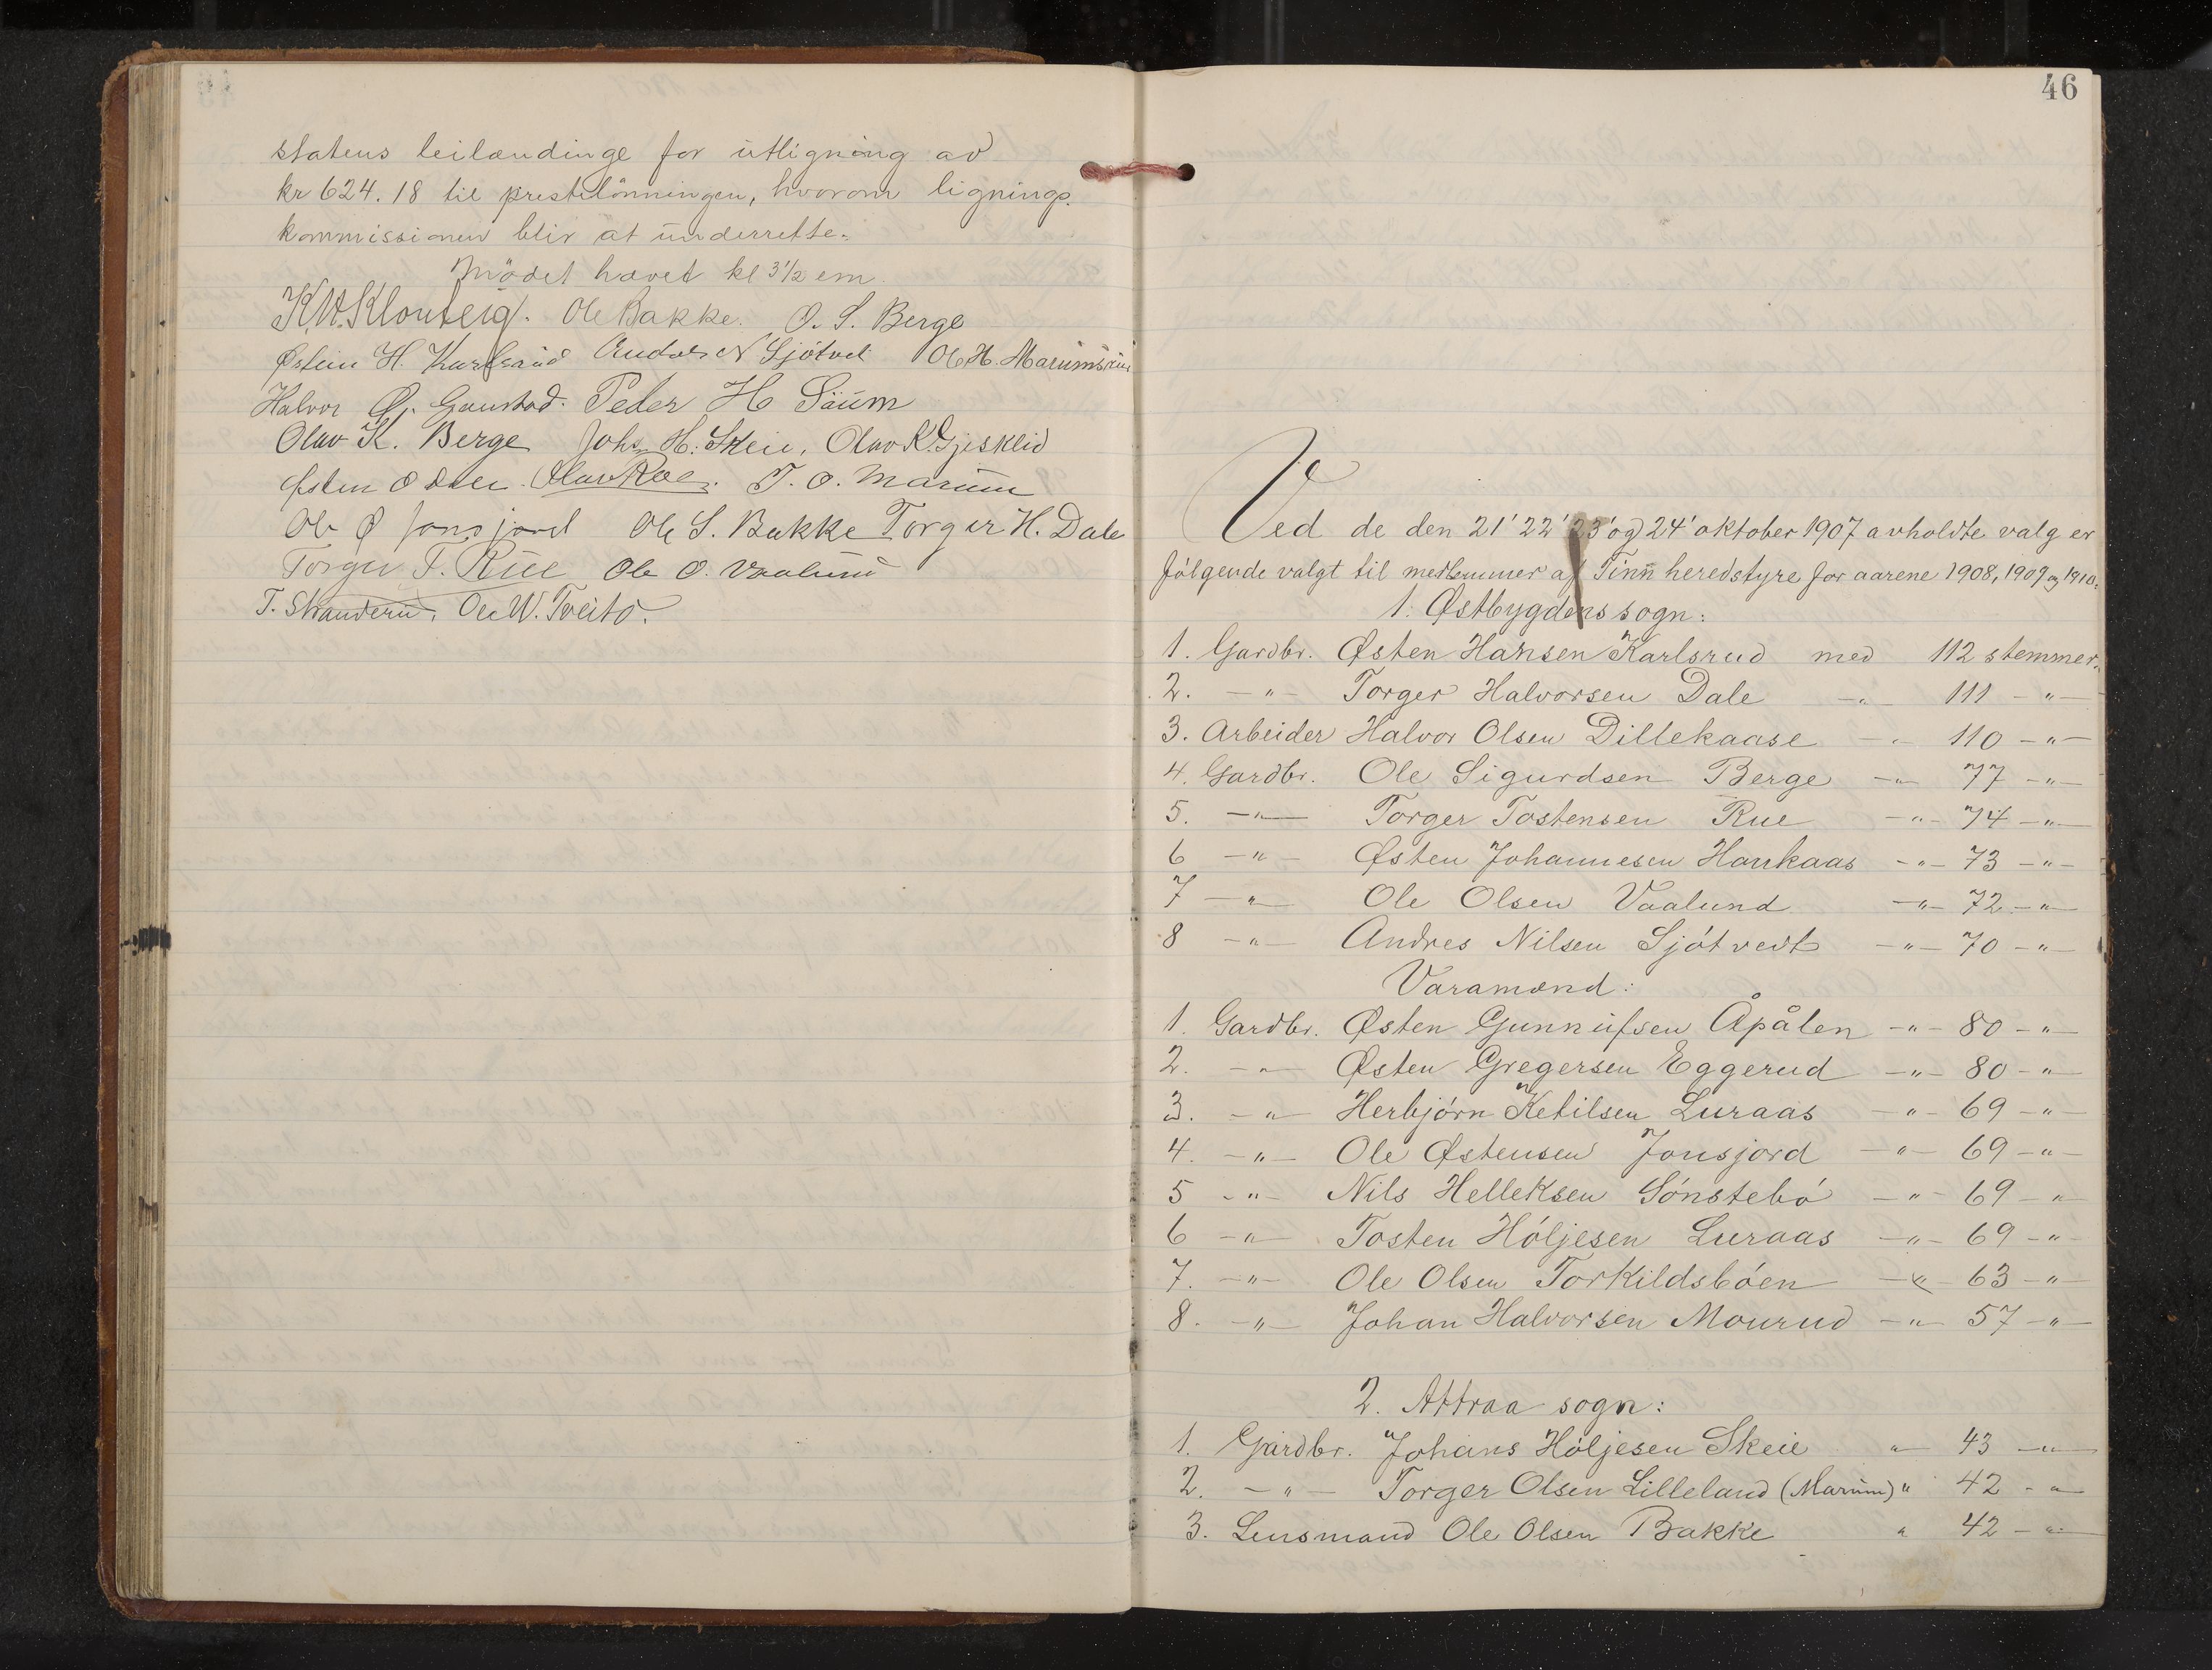 statens leilændinge for utligning av
kr 624.18 til prestelönningen, hvorom lignings-
kommissionen blir at underrette.
Mödet hævet kl 3½ em.
Ole Bakke. O. S. Berge
Østein H. Karlsrud Andres N Sjötvet Ole H. Marumsrue
Halvor Gaustad. Peder H Säum
Olav K. Berge Johs H. Skeie, Olav K. Gjesklid
Østen O Olav Roe. T. O. Marum
Ole Ø Jonsjord Ole S. Bakke Torger H. Dale
Torger T. Rue Ole O. Vaalund
T. Ole W. Tveito.
46
Ved de den 21' 22' 23' og 24' oktober 1907 avholdte valg er
følgende valgt til medlemmer af Tinn heredstyre for aarene 1908, 1909 og 1910:
1. Østbygdens sogn:
1. Gardbr. Østen Hansen Karlsrud med 112 stemmer.
2. -"- Torger Halvorsen Dale -"- 111 -"-
3. Arbeider Halvor Olsen Dillekaase -"- 110 -"-
4. Gardbr. Ole Sigurdsen Berge -"- 77 -"-
5. -"- Torger Tostensen Rue -"- 74 -"-
6 -"- Østen Johannesen Haukaas -"- 73 -"-
7 -"- Ole Olsen Vaalund -"- 72 -"-
8 -"- Andres Nilsen Sjótvedt -"- 70 -"-
Varamænd:
1. Gardbr. Østen Gunnufsen Åpålen -"- 80 -"-
2. -"- Østen Gregersen Eggerud -"- 80 -"-
3. -"- Herbjórn Ketilsen Luraas -"- 69 -"-
4. -"- Ole Østensen Jonsjord -"- 69 -"-
5 -"- Nils Helleksen Sónstebó -"- 69 -"-
6 -"- Tosten Hóljesen Luraas -"- 69 -"-
7. -"- Ole Olsen Torkildsbóen -"- 63 -"-
8. -"- Johan Halvorsen Mourud -"- 57 -"-
2. Attraa sogn:
1. Gardbr. Johans Höljesen Skeie " 43 -"-
2. -"- Torger Olsen Lilleland (Marum) " 42 -"-
3. Lensmand Ole Olsen Bakke " 42 -"-